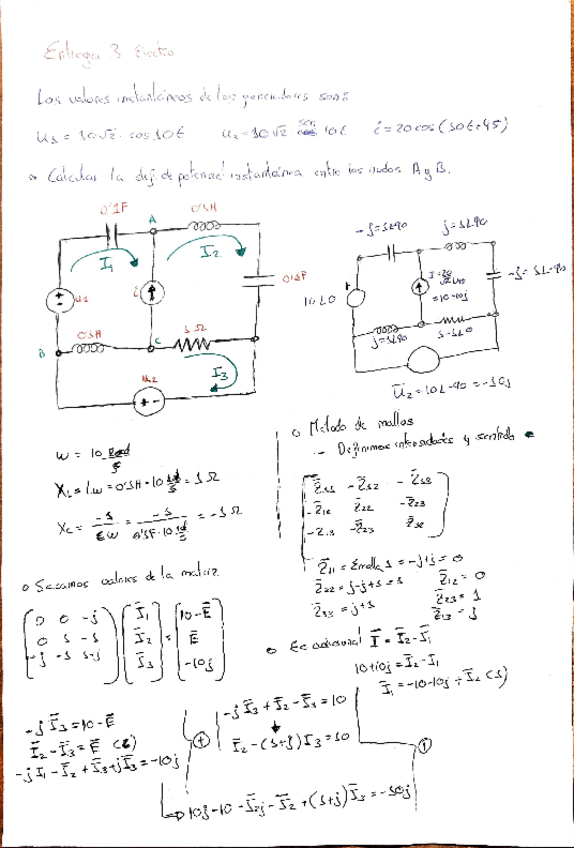 Entrega 3 Electro
Los valores instantáneos de los generadores son:
u1 = 10√2 · cos 10t   u2 = 10√2 sen 10t   i = 20 cos (10t+45)
Calcular la dif. de potencial instantánea entre los nudos A y B.
0'1F   A   0'1H
I1   I2
u1   i   0'1F
0'1H   1 Ω
B   C
I3
u2
-j=1∟-90   j=1∟90
10∟0
=10-10j
-j=1∟-90
j=1∟90   1=1∟0
U2=10∟-90=-10j
w = 10 rad/s
XL = L.w = 0'1H · 10 rad/s = 1 Ω
Xc = -1/(C w) = -1/(0'1F·10 rad/s) = -1 Ω
Método de mallas
- Definimos intensidades y sentido
Z11 -Z12 -Z13
-Z12 Z22 -Z23
-Z13 -Z23 Z33
Z11 = Σmalla 1 = -j+j = 0
Z22 = j-j+1 = 1   Z12 = 0
Z33 = j+1   Z23 = 1
Z13 = j
Sacamos valores de la matriz
0 0 -j   I1   10-E
0 1 -1   I2 = E
-j -1 1-j   I3   -10j
Ec adicional I = I2-I1
10+10j = I2-I1
I1 = -10-10j + I2 (1)
-jI3 = 10-E
I2-I3 = E (2)
-jI1-I2+I3+jI3 = -10j
+
-jI3+I2-I3 = 10
I2-(1+j)I3 = 10
1
10j-10-I2j-I2+(1+j)I3 = -10j